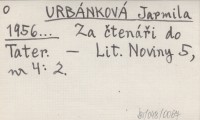 o URBÁNKOVÁ Jarmila
1956... Za čtenáři do
Tater. — Lit. Noviny 5,
nr 4: 2.